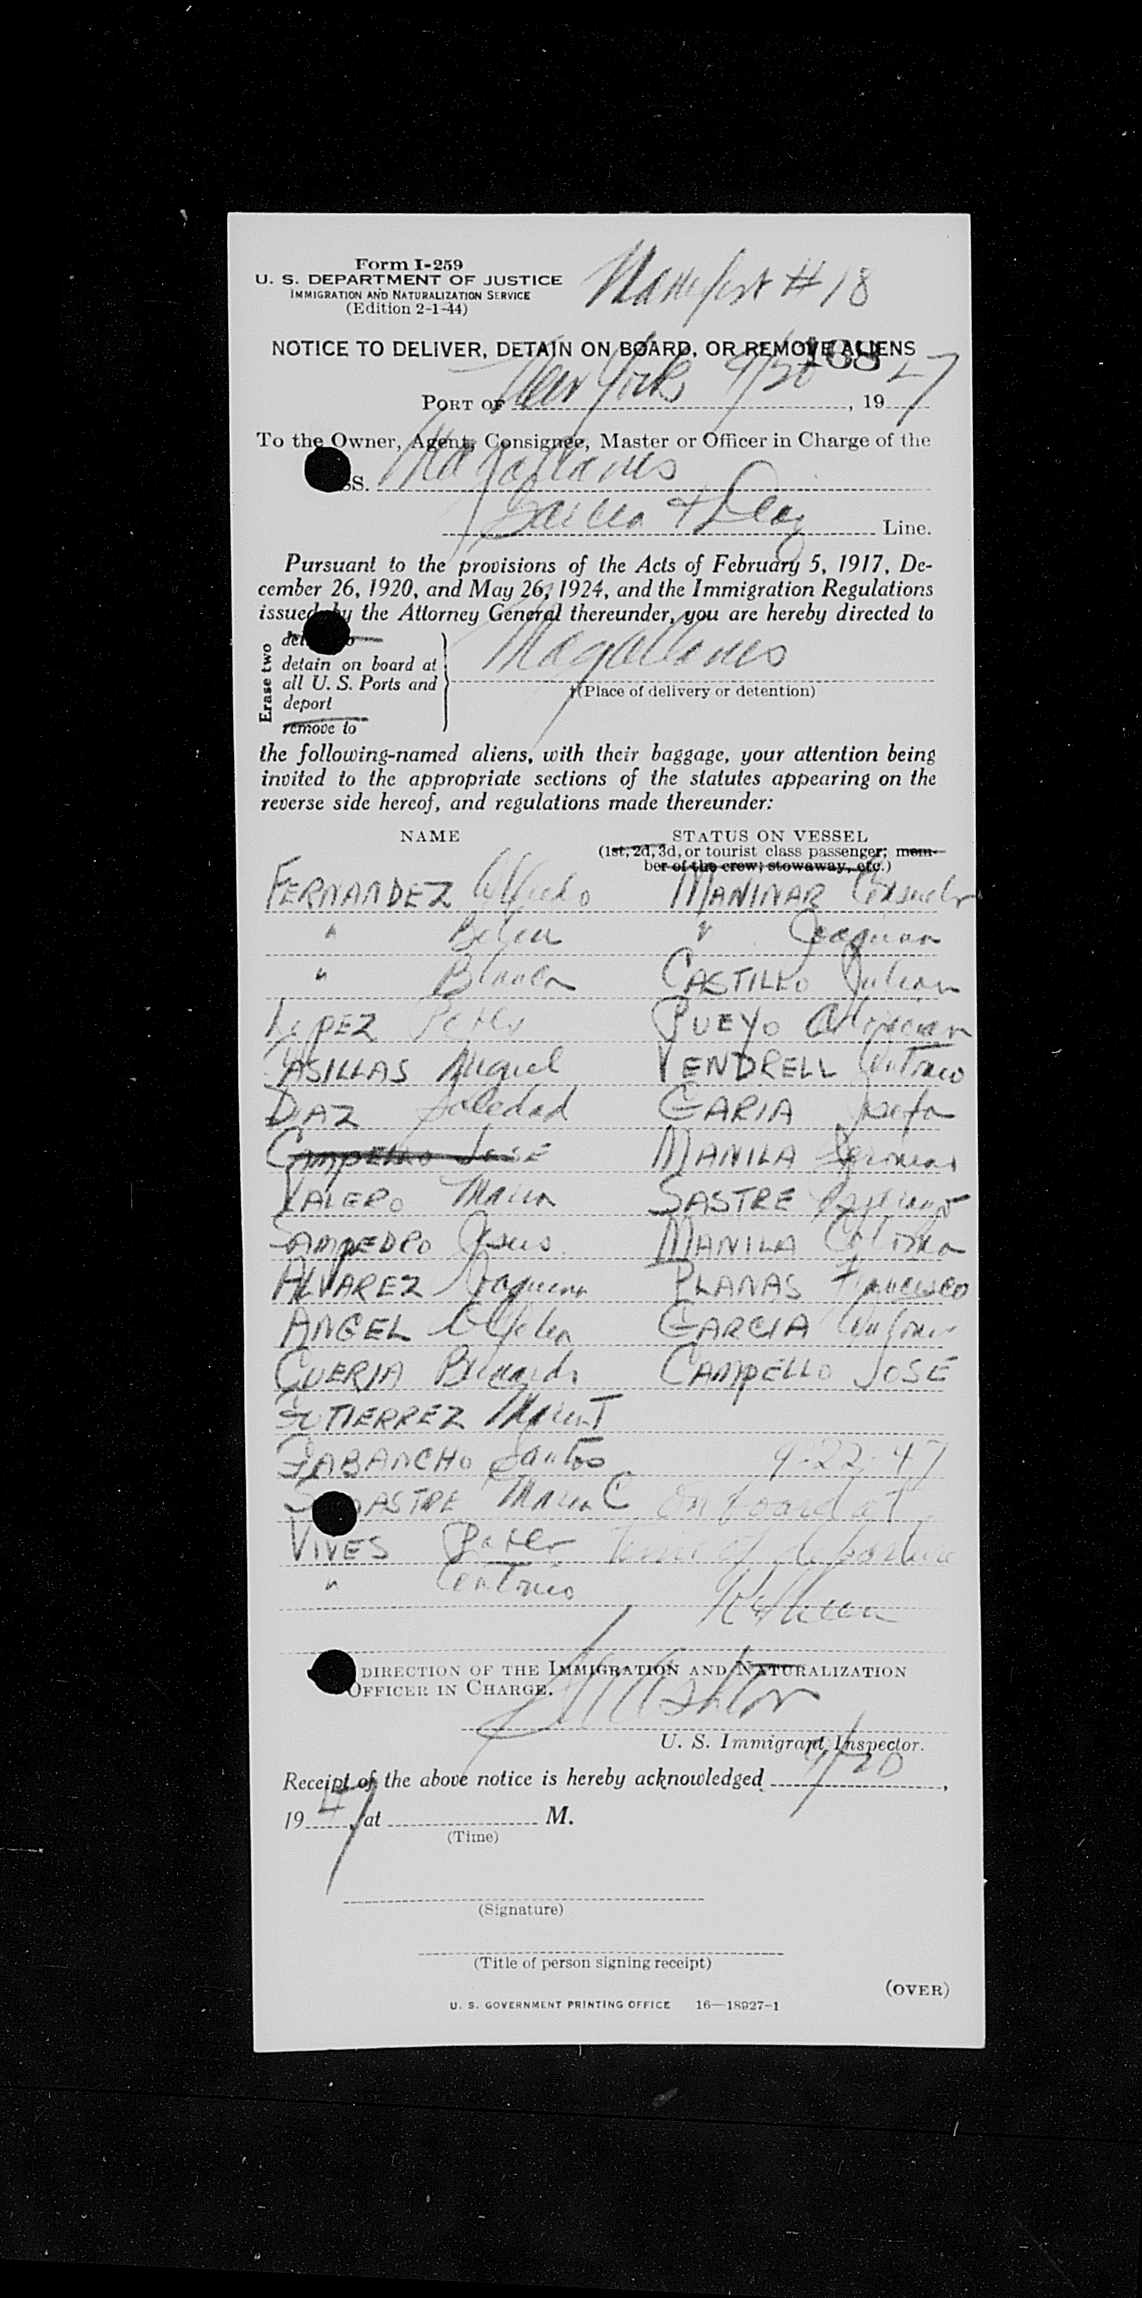 Form I-259
U. S. DEPARTMENT OF JUSTICE
IMMIGRATION AND NATURALIZATION SERVICE
(Edition 2-1-44)
Manifest #18
NOTICE TO DELIVER, DETAIN ON BOARD, OR REMOVE ALIENS
168
PORT OF New York 9/20, 1947
To the Owner, Agent, Consignee, Master or Officer in Charge of the
SS. Magallanes
Garcia & Diaz Line.
Pursuant to the provisions of the Acts of February 5, 1917, De-
cember 26, 1920, and May 26, 1924, and the Immigration Regulations
issued by the Attorney General thereunder, you are hereby directed to
Erase two
detain on board at
all U. S. Ports and
deport
remove to
Magallanes
†(Place of delivery or detention)
the following-named aliens, with their baggage, your attention being
invited to the appropriate sections of the statutes appearing on the
reverse side hereof, and regulations made thereunder:
NAME STATUS ON VESSEL
(1st, 2d, 3d, or tourist class passenger; mem-
ber of the crew; stowaway, etc.)
FERNANDEZ Alfredo MANINAR Consuelo
" Belen " Joaquina
" Blanca CASTILLO Julian
LOPEZ Pedro PUEYO
CASILLAS Miguel VENDRELL Antonio
DIAZ Soledad GARIA Josefa
CAMPELLO JOSE MANILA
VALERO Maria SASTRE
SAMPEDRO Jesus MANILA
ALVAREZ Joaquina PLANAS Francisco
ANGEL GARCIA
GUERIA CAMPELLO JOSE
GUTIERREZ
Santos 9-22-47
Maria C on board at
VIVES time of departure
" Antonio
DIRECTION OF THE IMMIGRATION AND NATURALIZATION
OFFICER IN CHARGE.
U. S. Immigrant Inspector.
Receipt of the above notice is hereby acknowledged 9/20,
1947, at M.
(Time)
(Signature)
(Title of person signing receipt)
(OVER)
U. S. GOVERNMENT PRINTING OFFICE 16—18927-1